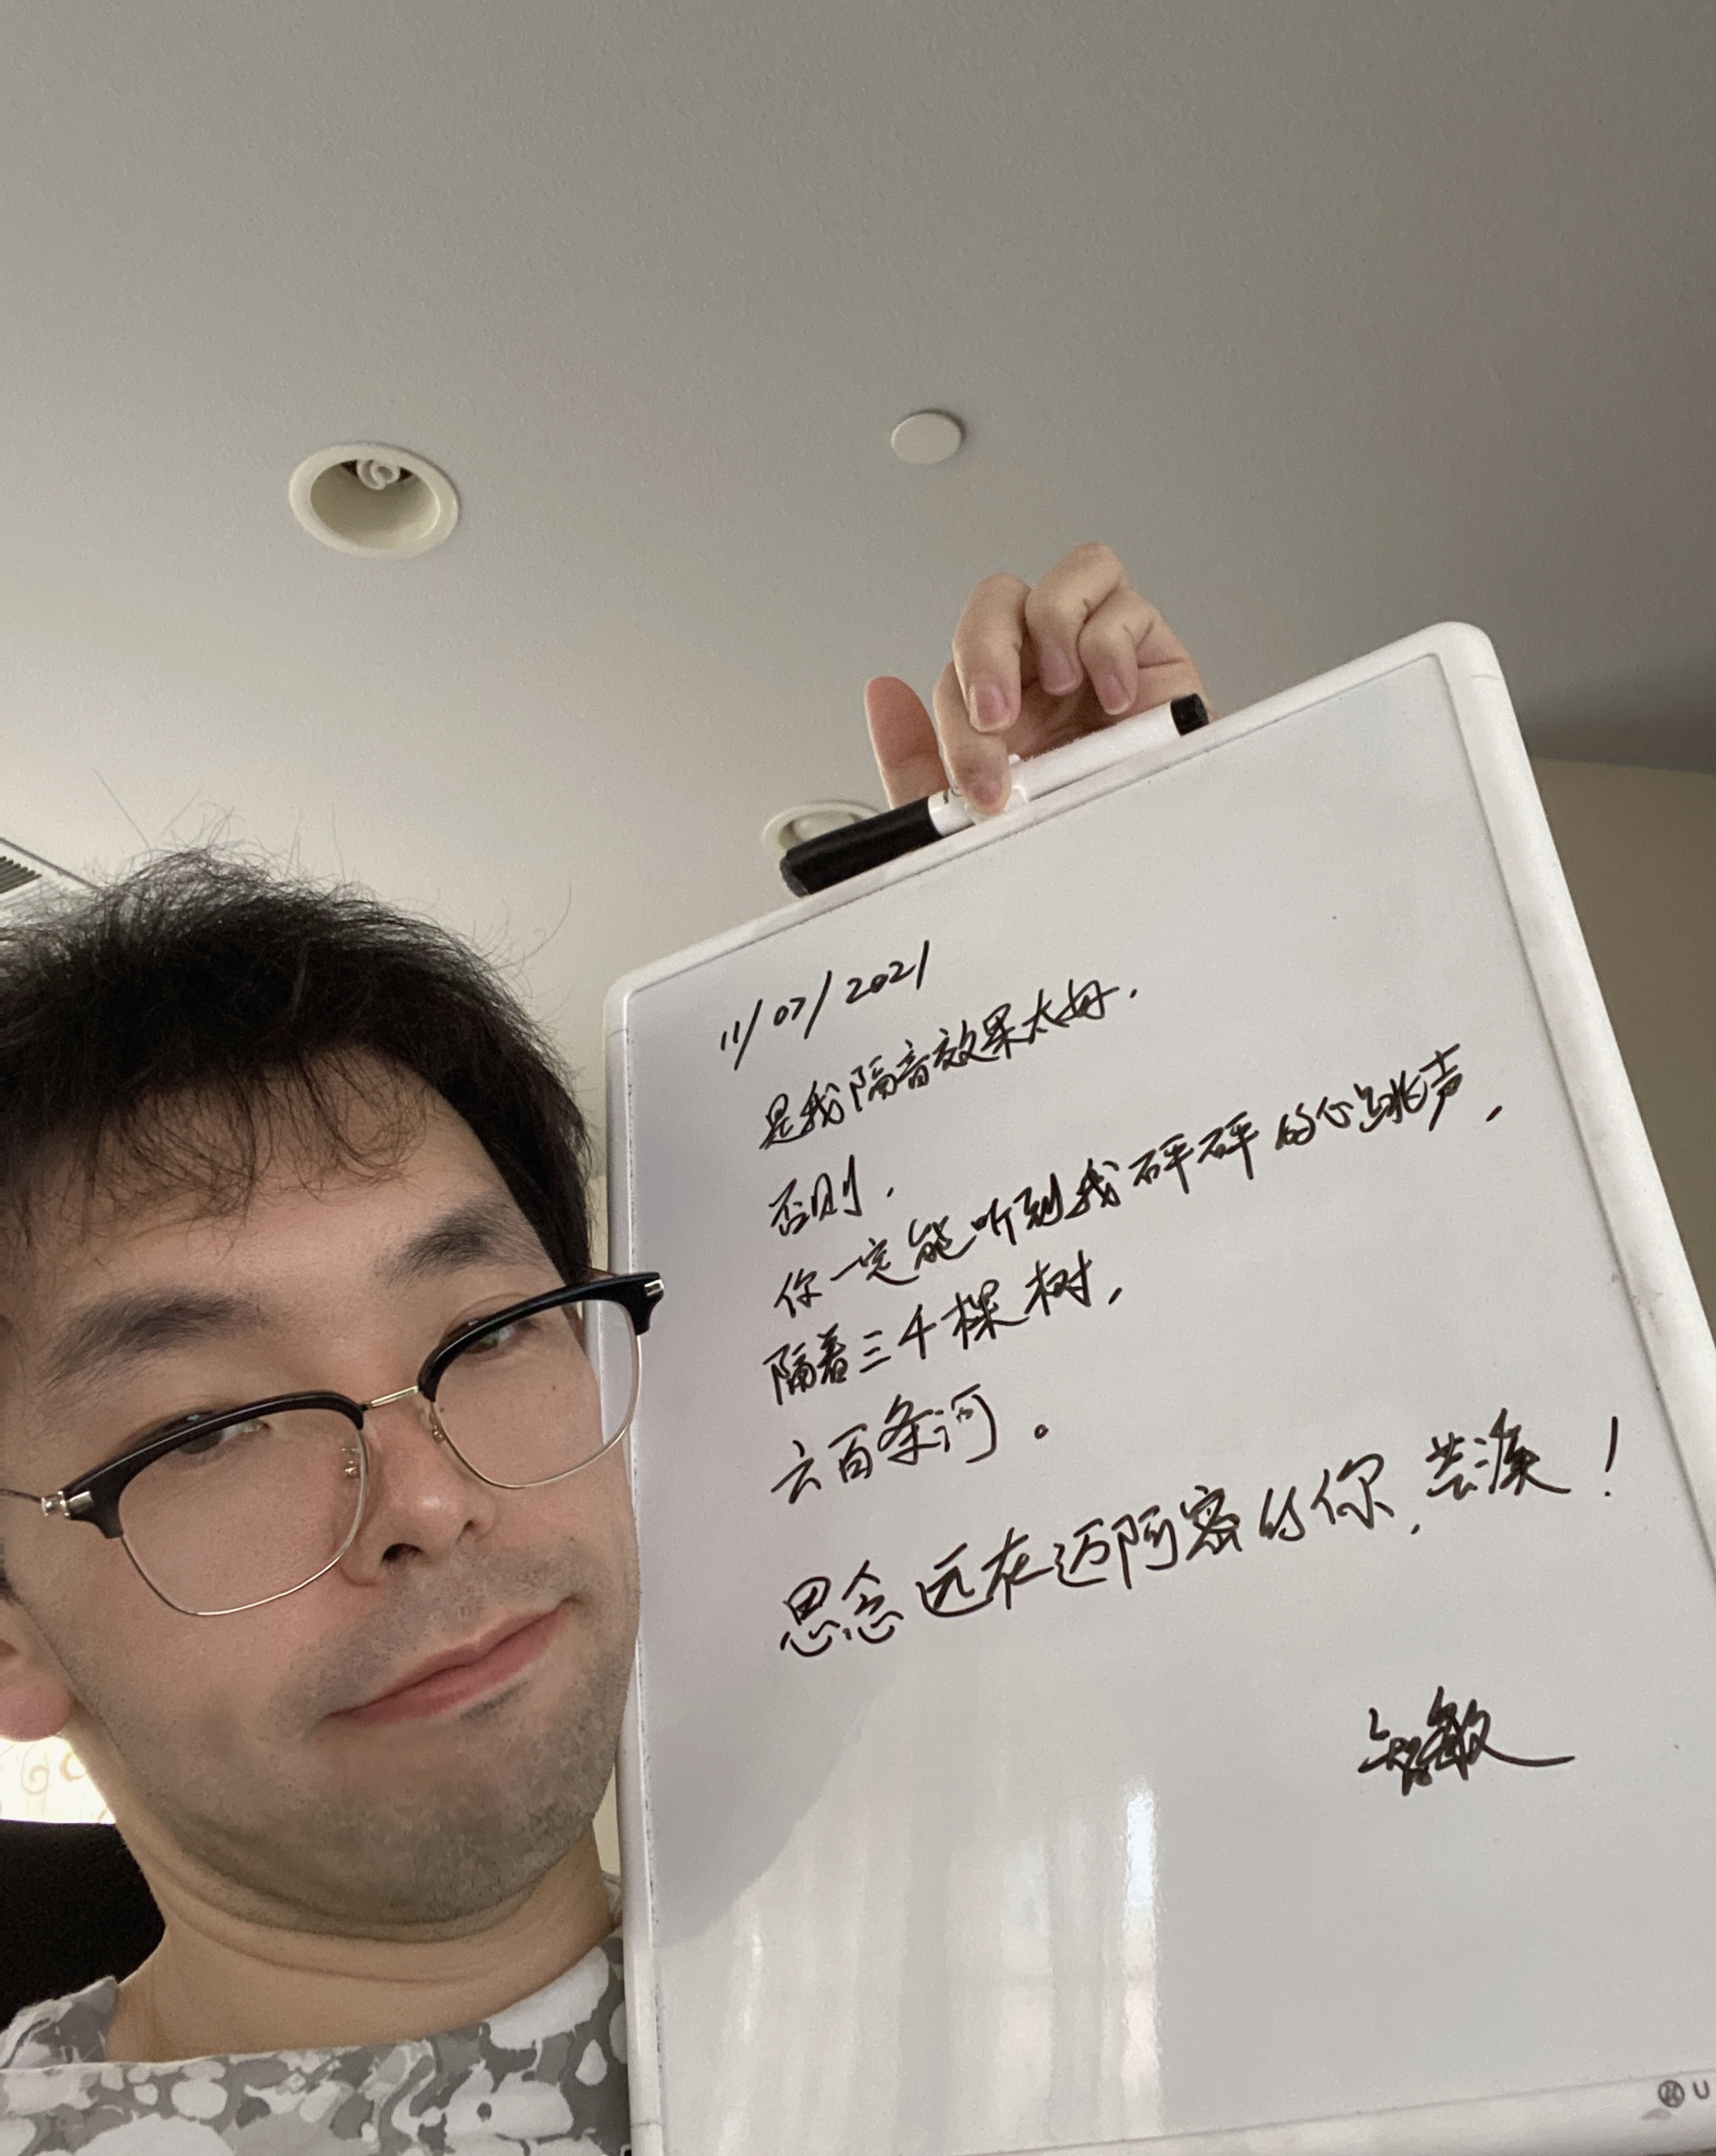 11/07/2021
是我隔音效果太好.
否则,
你一定能听到我砰砰的心跳声,
隔着三千棵树,
六百条河。
思念远在迈阿密的你,芸溪!
智敏
U